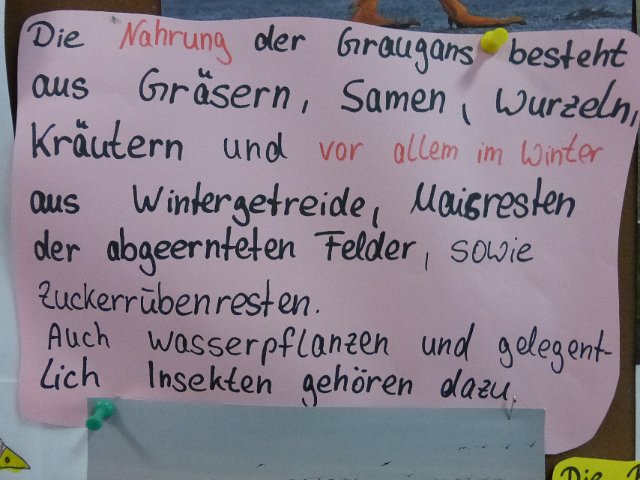 Die Nahrung der Graugans besteht
aus Gräsern, Samen, Wurzeln,
Kräutern und vor allem im Winter
aus Wintergetreide, Maisresten
der abgeernteten Felder, sowie
Zuckerrübenresten.
Auch Wasserpflanzen und gelegent-
lich Insekten gehören dazu.
Die